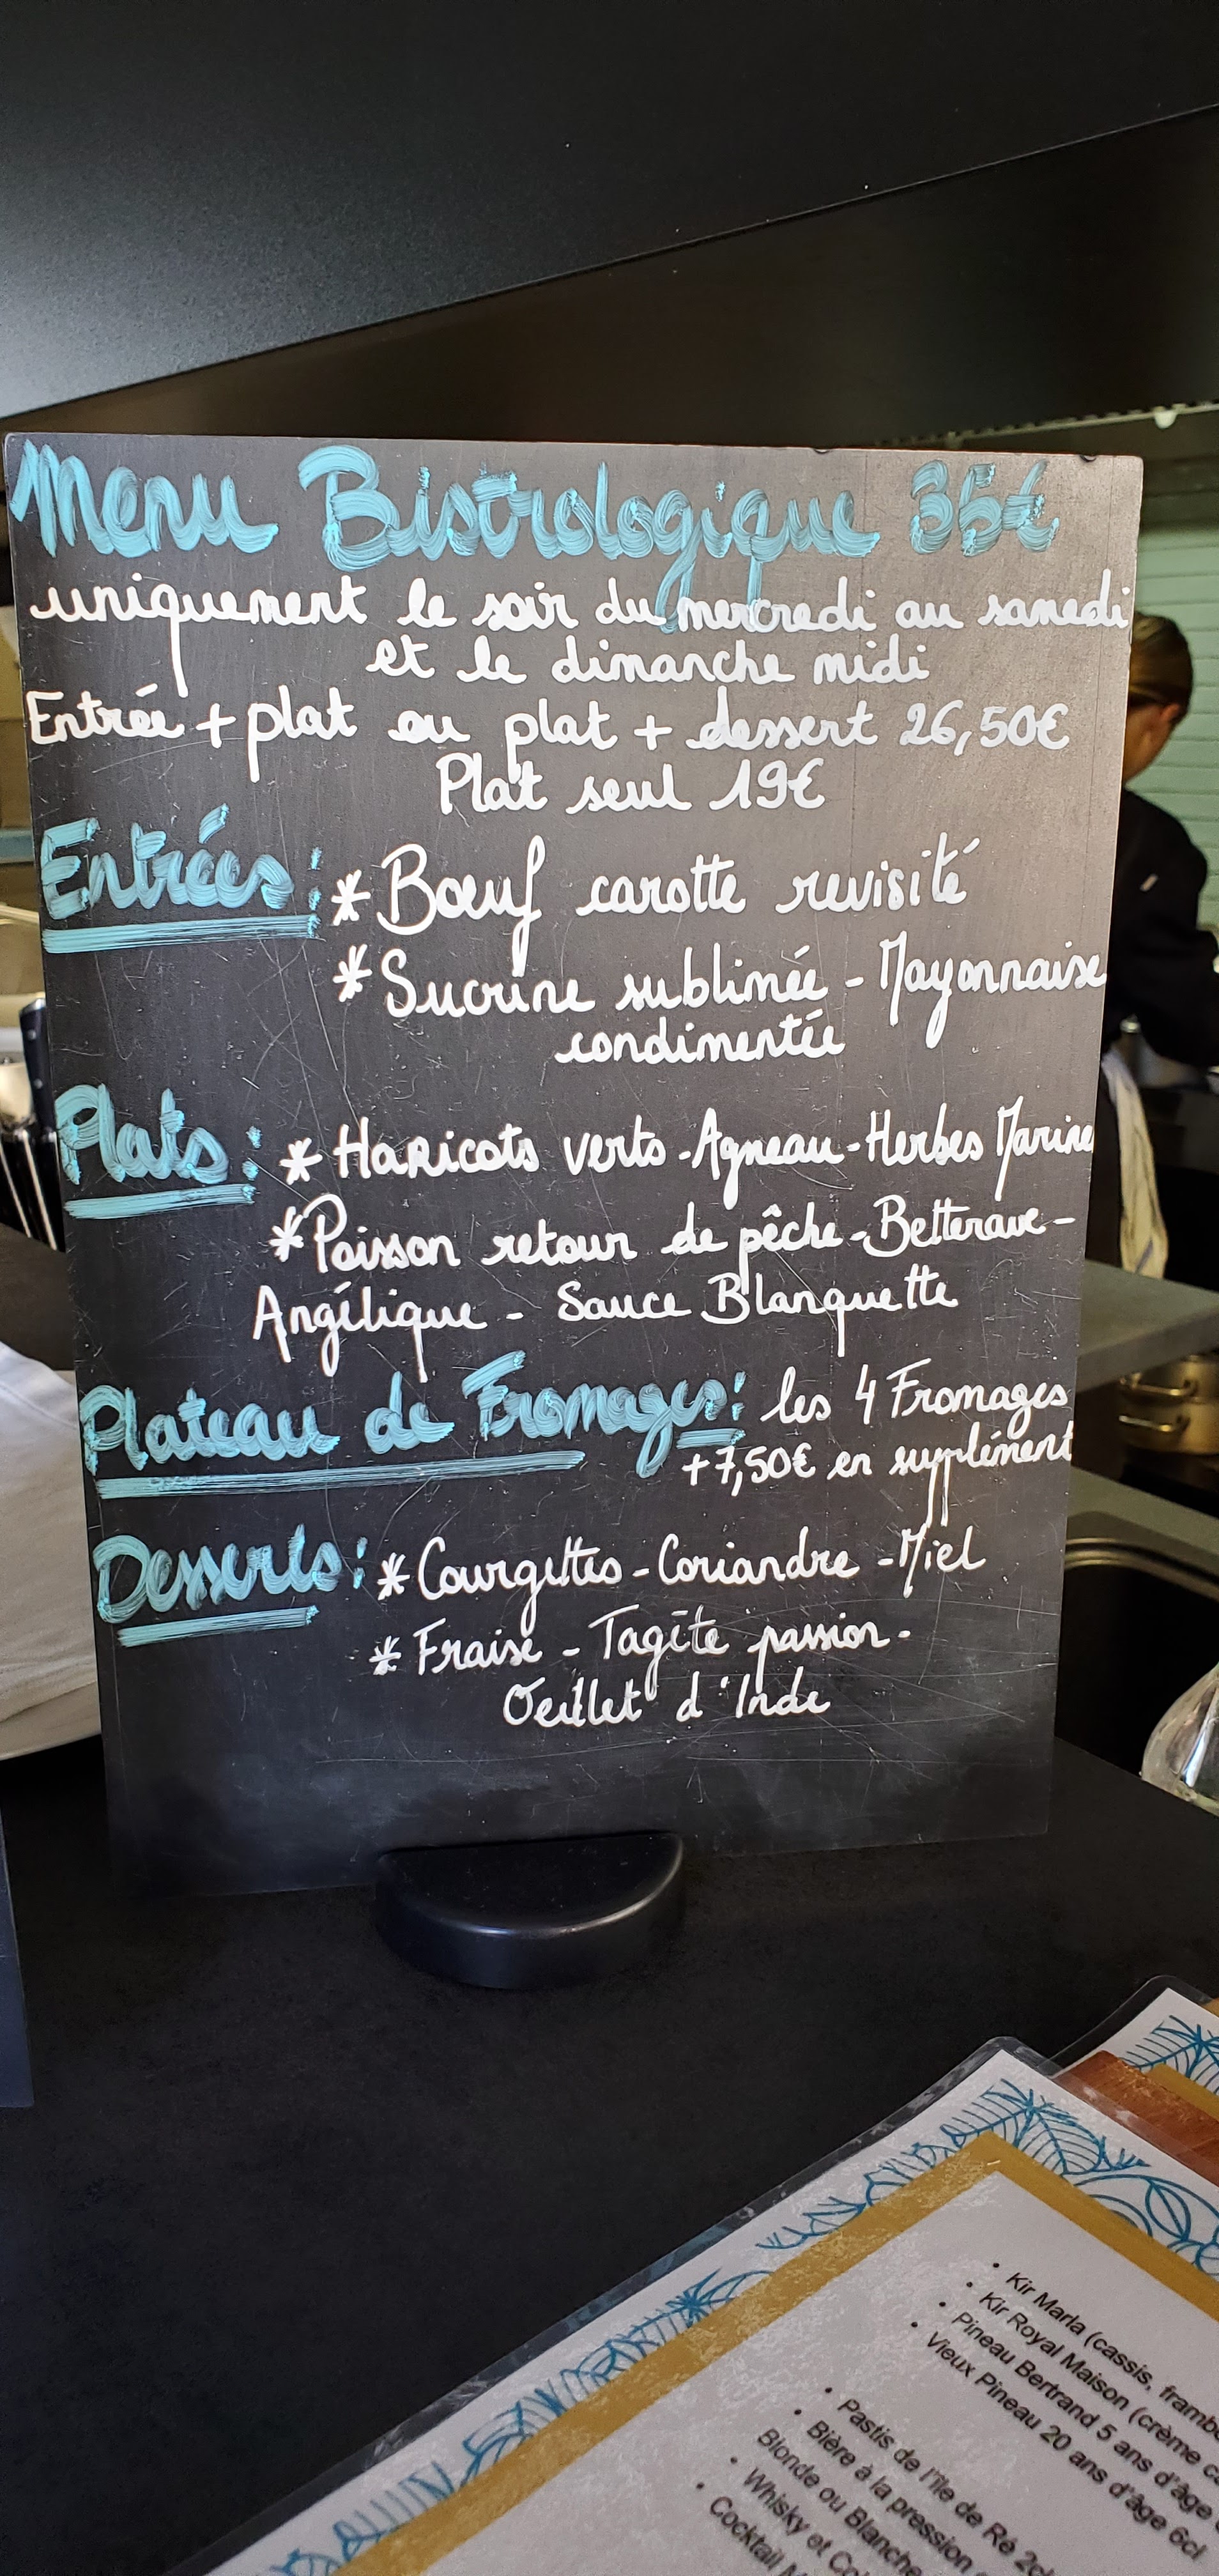 Menu Bistrologique 35€
uniquement le soir du mercredi au samedi
et le dimanche midi
Entrée + plat ou plat + dessert 26,50€
Plat seul 19€
Entrées: * Bœuf carotte revisité
* Sucrine sublimée - Mayonnaise
condimentée
Plats: * Haricots verts - Agneau - Herbes Marine
* Poisson retour de pêche - Betterave -
Angélique - Sauce Blanquette
Plateau de Fromages: les 4 Fromages
+7,50€ en supplément
Desserts: * Courgettes - Coriandre - Miel
* Fraise - Tagète passion -
Oeillet d'Inde
• Kir Marla (cassis,
• Kir Royal Maison (crème
• Pineau Bertrand 5 ans d'âge
• Vieux Pineau 20 ans d'âge 6cl
• Pastis de l'île de Ré
• Bière à la pression
Blonde ou Blanche
• Whisky et
• Cocktail